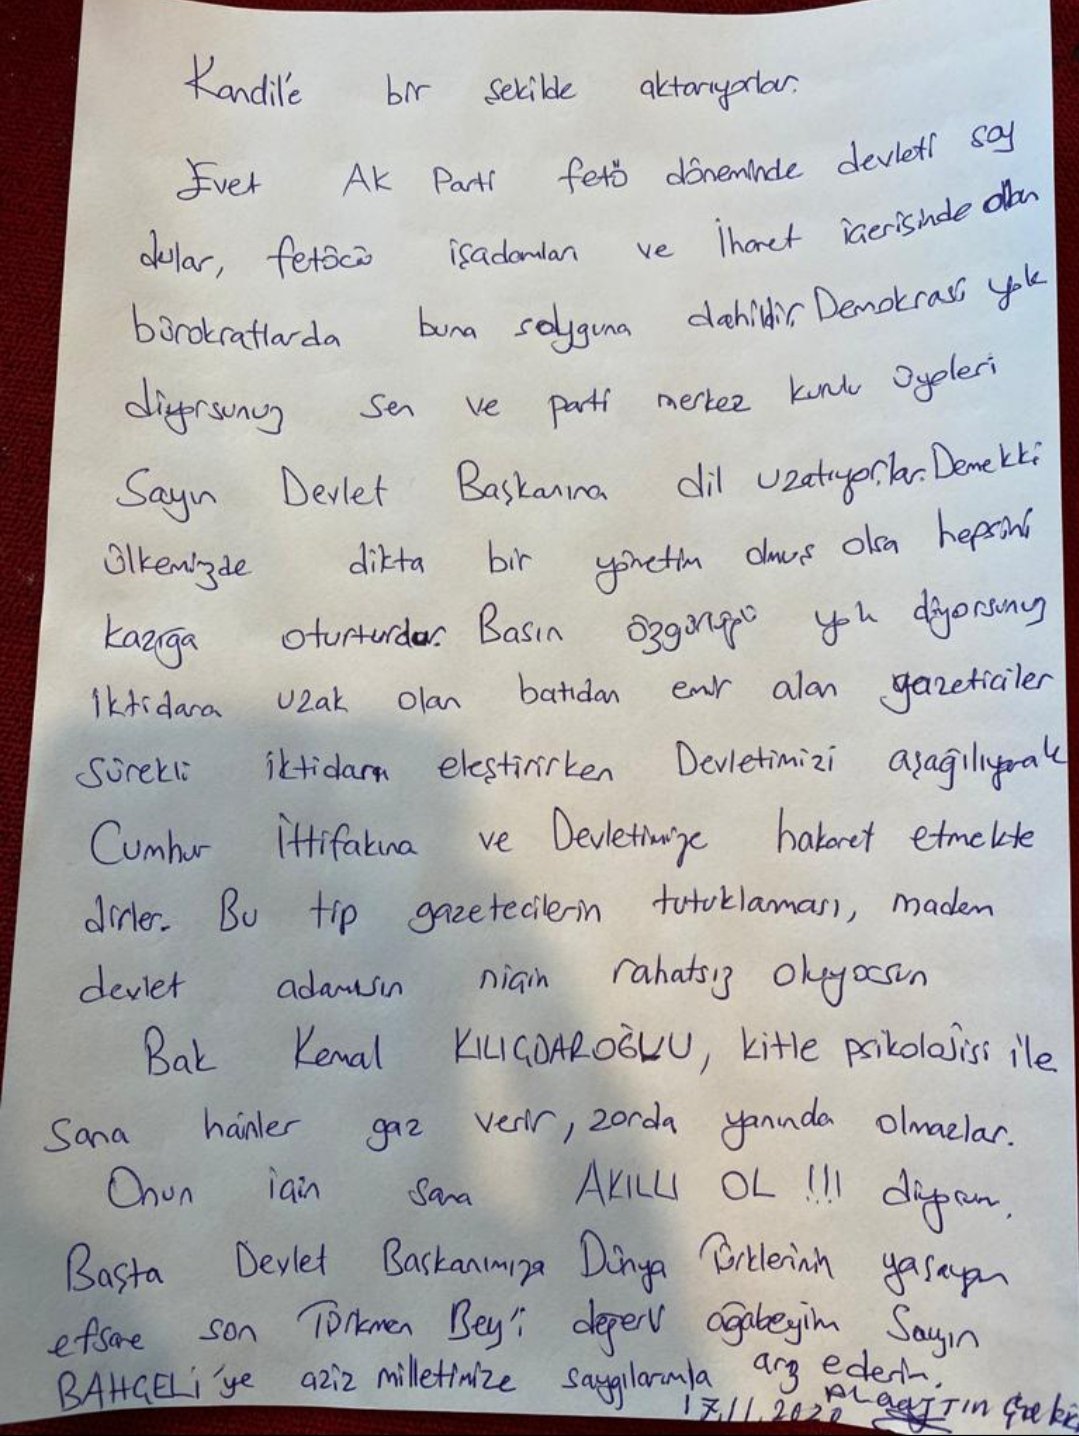 Kandil'e bir şekilde aktarıyorlar.
Evet Ak Parti fetö döneminde devleti soy
dular, fetöcü işadamları ve İhanet içerisinde olan
bürokratlarda buna soyguna dahildir. Demokrasi yok
diyorsunuz sen ve parti merkez kurulu üyeleri
Sayın Devlet Başkanına dil uzatıyorlar. Demekki
ülkemizde dikta bir yönetim olmuş olsa hepsini
kazığa oturturdu. Basın özgürlüğü yok diyorsunuz
iktidara uzak olan batıdan emir alan gazeticiler
sürekli iktidarı eleştirirken Devletimizi aşağılıyarak
Cumhur İttifakına ve Devletimize hakaret etmekte
dirler. Bu tip gazetecilerin tutuklaması, madem
devlet adamısın niçin rahatsız oluyorsun
Bak Kemal KILIÇDAROĞLU, kitle psikolojisi ile
Sana hainler gaz verir, zorda yanında olmazlar.
Onun için sana AKILLI OL !!! diyorum.
Başta Devlet Başkanımıza Dünya Türklerinin yaşayan
efsane son Türkmen Bey'i değerli ağabeyim Sayın
BAHÇELİ'ye aziz milletimize saygılarımla arz ederim.
17.11.2020 ALaaTTin